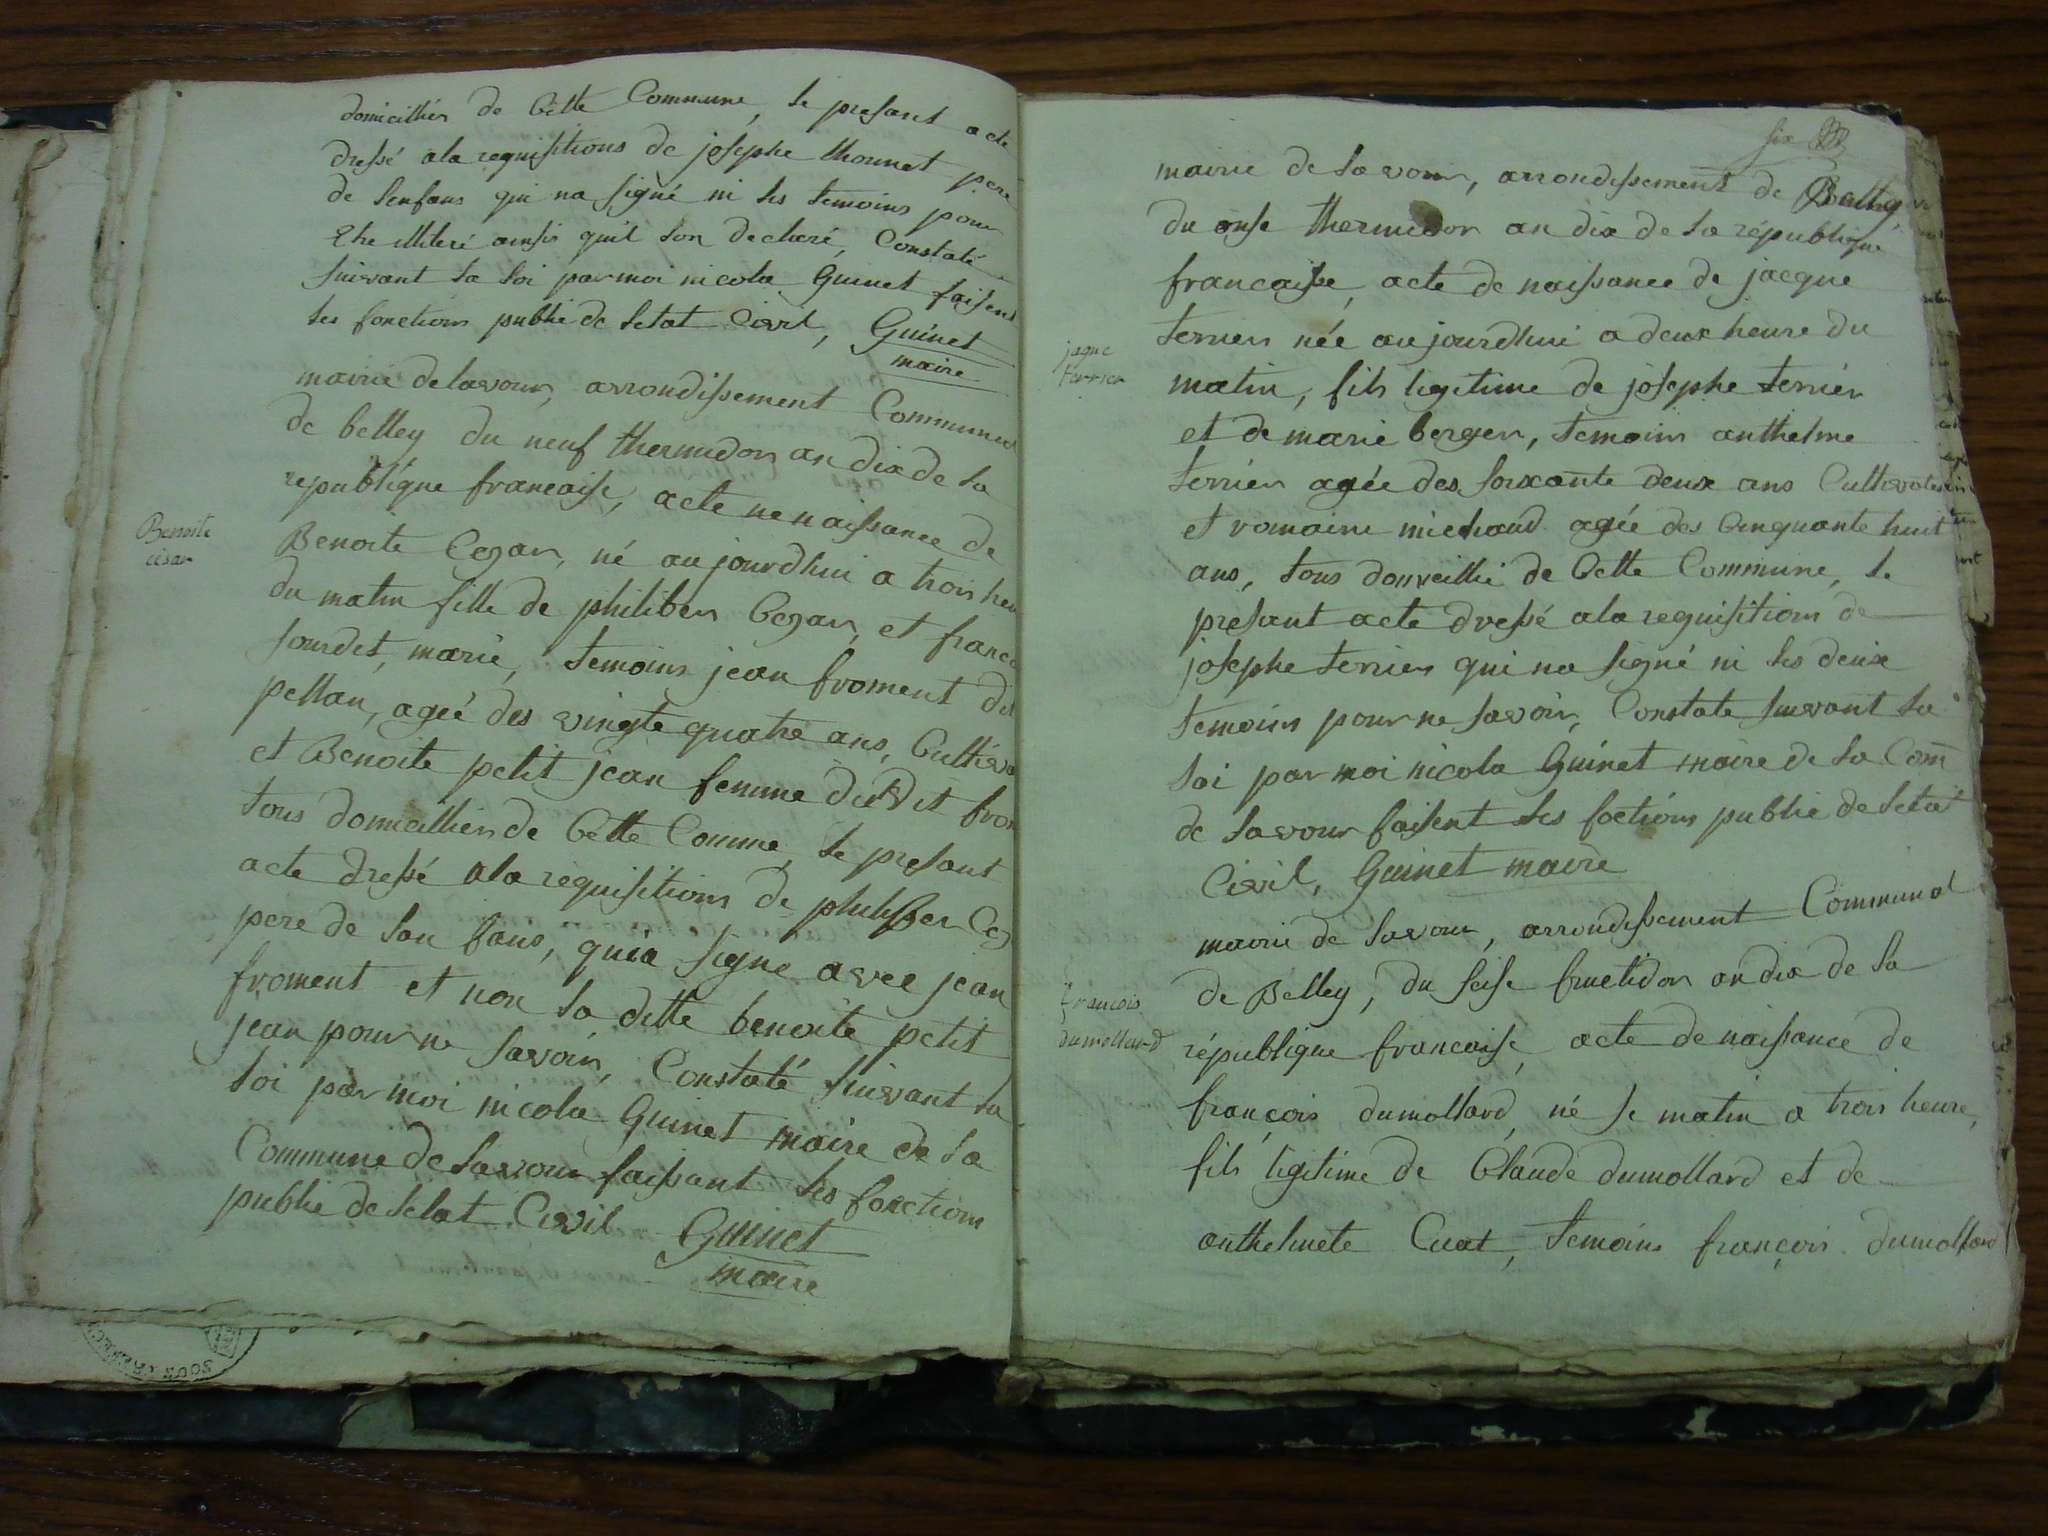 domicilliés de Cette Commune, le presant acte
dressé ala requisitions de josephe thonnet pere
de lenfans qui na signé ni les temoins pour
Etre illiteré ainsis quil lon decleré, Constaté
suivant la loi par moi nicola Guinet faisent
les fonctions public de letat Civil, Guinet
maire
mairie de lavour, arrondissement Communal
de belley du neuf thermidor an dix de la
republique francaise, acte ne naissance de
Benoite
cesar
Benoite Cezar, né aujourdhui a trois heu
du matin fille de philiber Cezar, et france
jourdet, marié, temoins jean froment dit
pellan, ageé des vingte quatre ans, Cultiva
et Benoite petit jean femme dudit from
tous domicillier de Cette Comme, le presant
acte dressé ala requisitions de philiber Cez
pere de lan fans, qui a signe avec jean
froment et non la ditte benoite petit
jean pour ne savoir, Constaté suivant la
loi par moi nicola Guinet maire de la
Commune de lavour faissant les fonctions
public de letat Civil Guinet
maire
six
mairie de lavour, arrondissement de Belley,
du onse thermidor an dix de la république
francaisse, acte de naissance de jacque
jaque
terrier
terrier née aujourdhui a deux heure du
matin, fils legitime de josephe terrier
et de marie berger, temoins anthelme
terrier ageé des soixante deux ans Cultivateur
et romains michaud ageé des Cinquante huit
ans, tous domicillié de Cette Commune, le
présant acte dressé ala requisitions de
josephe terrier qui na signé ni les deux
temoins pour ne savoir, Constate suivant la
loi par moi nicola Guinet maire de la Com
de lavour faisent les foctions public de letat
Civil, Guinet maire
mairie de lavour, arrondissement Communal
de Belley, du seise fructidor an dix de la
françois
dumollard
république francaise, acte de naissance de
françois dumollard, né le matin a trois heure,
fils legitime de Claude dumollard et de
anthelmete Cuat, temoins françois dumollard